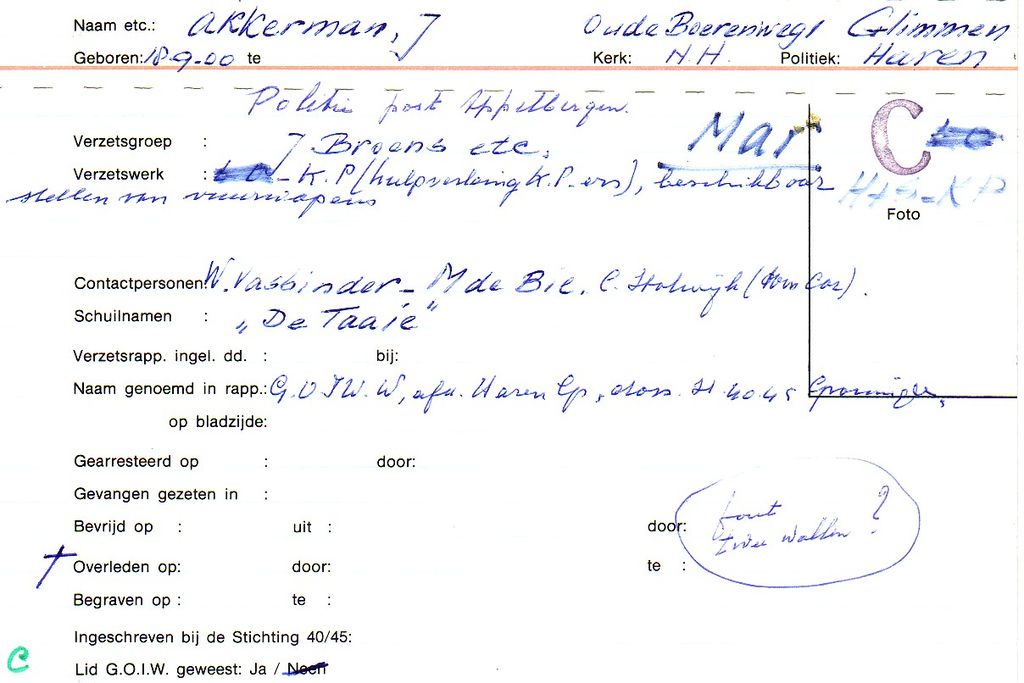 Naam etc.: Akkerman, J Oude Boerenweg 1 Glimmen
Geboren: 18-9-00 te Kerk: N.H. Politiek: Haren
Politie post Appelbergen.
Verzetsgroep : J Broens etc. Mar C
Verzetswerk : - K.P (hulpverlening K.P.-ers), beschikbaar
stellen van vuurwapens
Foto
Contactpersonen: W. Vasbinder - M de Bie. C. (Tom Cos).
Schuilnamen : "De Taaie"
Verzetsrapp. ingel. dd. : bij:
Naam genoemd in rapp.: G.O.I.W.W, afd. Haren Gn, doss. H 40.45 Groningen,
op bladzijde:
Gearresteerd op : door:
Gevangen gezeten in :
Bevrijd op : uit : door: fout ?
twee wallen
Overleden op: door: te :
Begraven op : te :
Ingeschreven bij de Stichting 40/45:
C Lid G.O.I.W. geweest: Ja / Neen